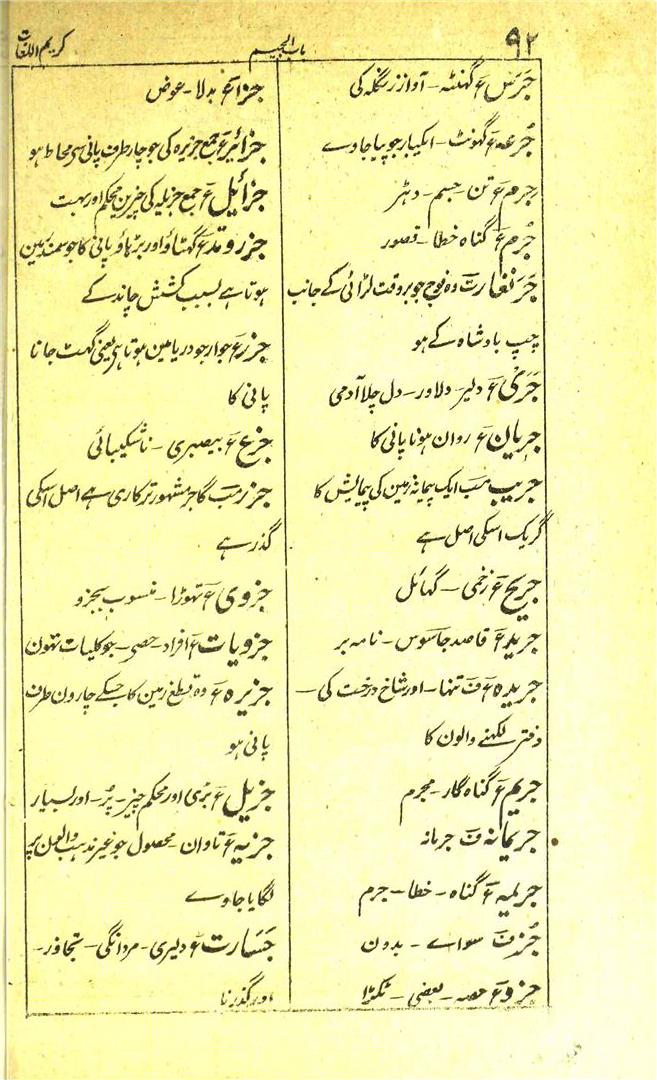 ۹۲
باب الجیم
کریم اللغات
جَرَس ع گھنٹہ - آواز زنگلہ کی
جُرعہ ع گھونٹ - ایکبار جو پیا جاوے
جِرم ع تن - جسم - دہڑ
جُرم ع گناہ خطا - قصور
جَرنغار ت وہ فوج جو بروقت لڑائی کے جانب
چپ بادشاہ کے ہو
جَرَی ع دلیر - دلاور - دل چلا آدمی
جریان ع روان ہونا پانی کا
جریب مب ایک پیمانہ زمین کی پیمایش کا
گریک اسکی اصل ہے
جریح ع زخمی - گہائل
جرید ع قاصد جاسوس - نامہ بر
جریدہ ع ف تنہا - اور شاخ درخت کی -
دفتر لکہنے والون کا
جریم ع گناہ گار - مجرم
جریمانہ ف جرمانہ
جریمہ ع گناہ - خطا - جرم
جُز ف سواے - بدون
جزو ع حصہ - بعضی - ٹکڑا
جزا ع بدلا - عوض
جزائر ع جمع جزیرہ کی جو چار طرف پانی سے محاط ہو
جزائیل ع جمع جزیلہ کی چیزین محکم اور بہت
جزر و مد ع گہٹاؤ اور بڑہاؤ پانی کا جو سمندر مین
ہوتا ہے بسبب کشش چاند کے
جزر ع جوار جو دریا مین ہوتا ہے یعنی گہٹ جانا
پانی کا
جزع ع بیصبری - ناشکیبائی
جزر مب گاجر مشہور ترکاری ہے اصل اسکی
گذر ہے
جزوی ع تہوڑا - منسوب بجزو
جزویات ع افراد - حصے - جو کلیات نہون
جزیرہ ع وہ قطع زمین کا جسکے چارون طرف
پانی ہو
جزیل ع بڑی اور محکم چیز - پُر - اور بسیار
جزیہ ع تاوان - محصول جو غیر مذہب والون پر
لگایا جاوے
جَسارت ع دلیری - مردانگی - تجاوز -
اور گذرنا